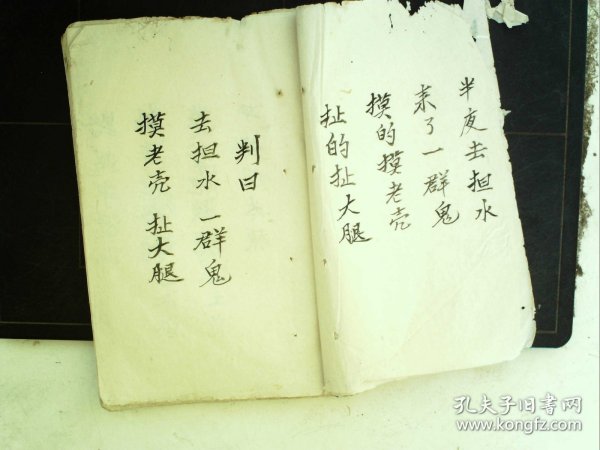 半夜去担水
来了一群鬼
摸的摸老壳
扯的扯大腿
判曰
去担水 一群鬼
摸老壳 扯大腿
孔夫子旧书网
www.kongfz.com